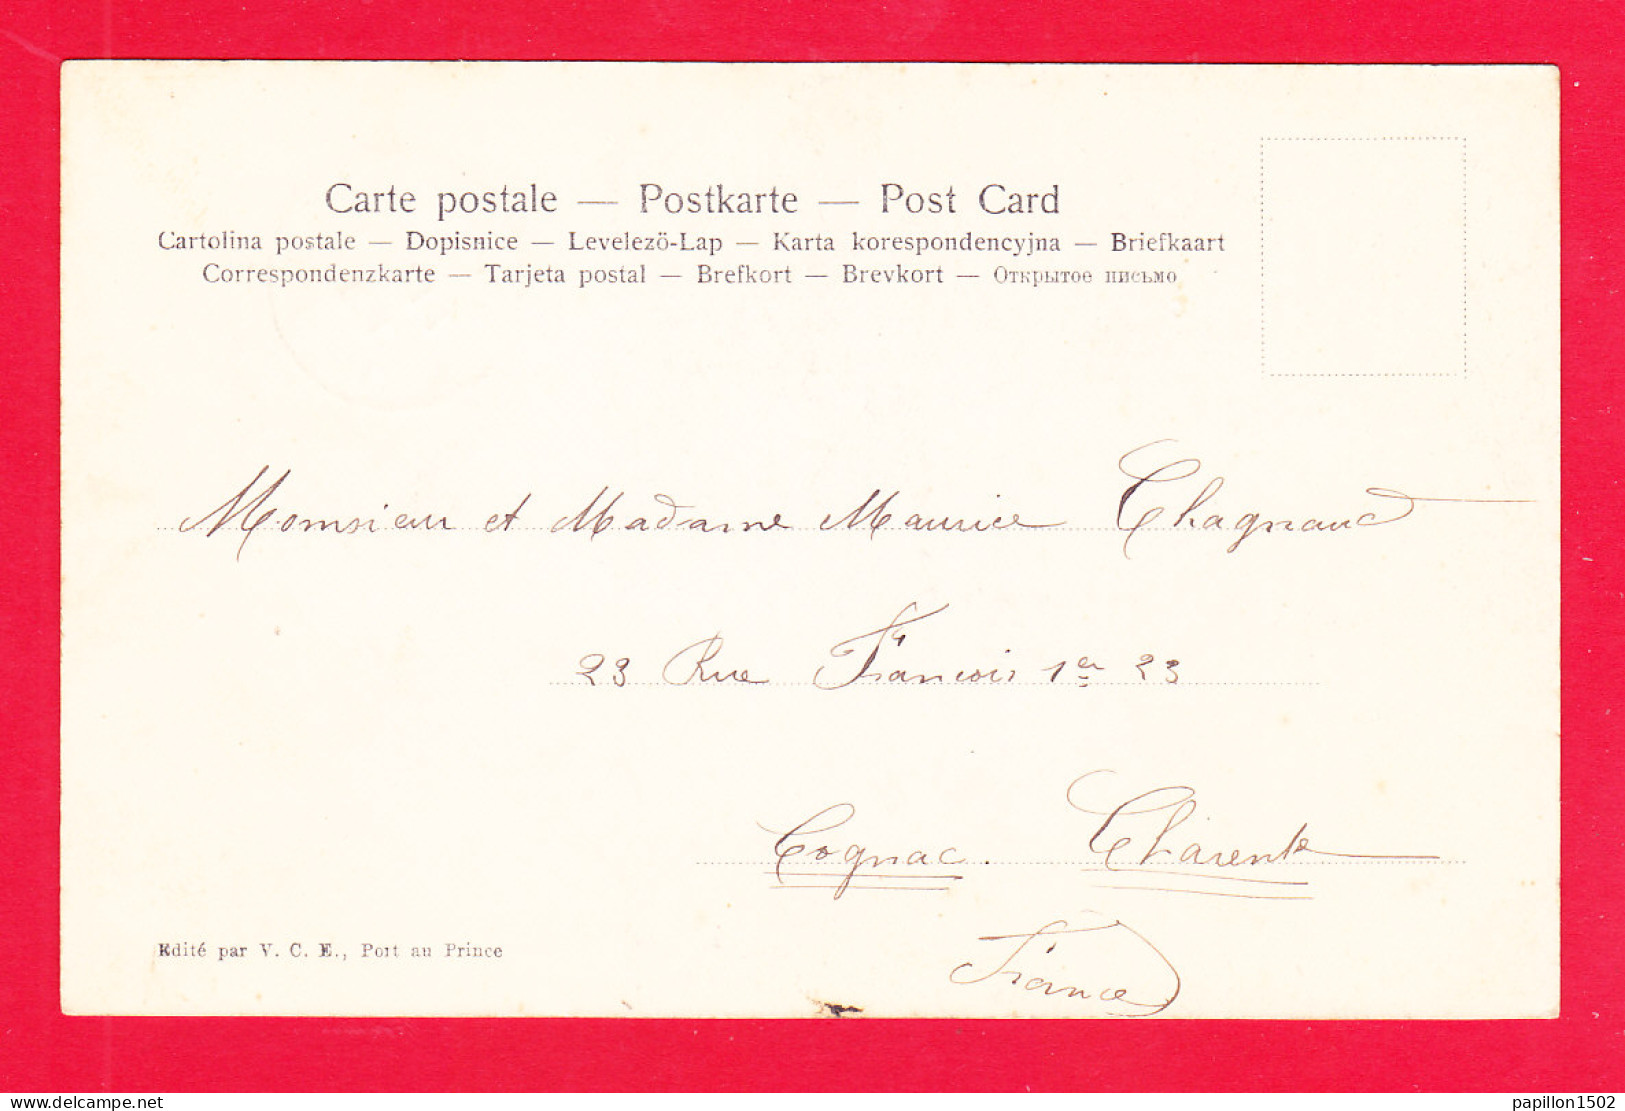 Carte postale — Postkarte — Post Card
Cartolina postale — Dopisnice — Levelezö-Lap — Karta korespondencyjna — Briefkaart
Correspondenzkarte — Tarjeta postal — Brefkort — Brevkort — Открытое письмо
Monsieur et Madame Maurice Chagnaud
23 Rue Francois 1er 23
Cognac. Charente
France
Edité par V. C. E., Port au Prince
delcampe.net
papillon1502